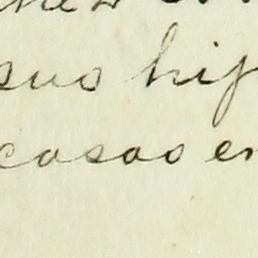 sus hij
casas en